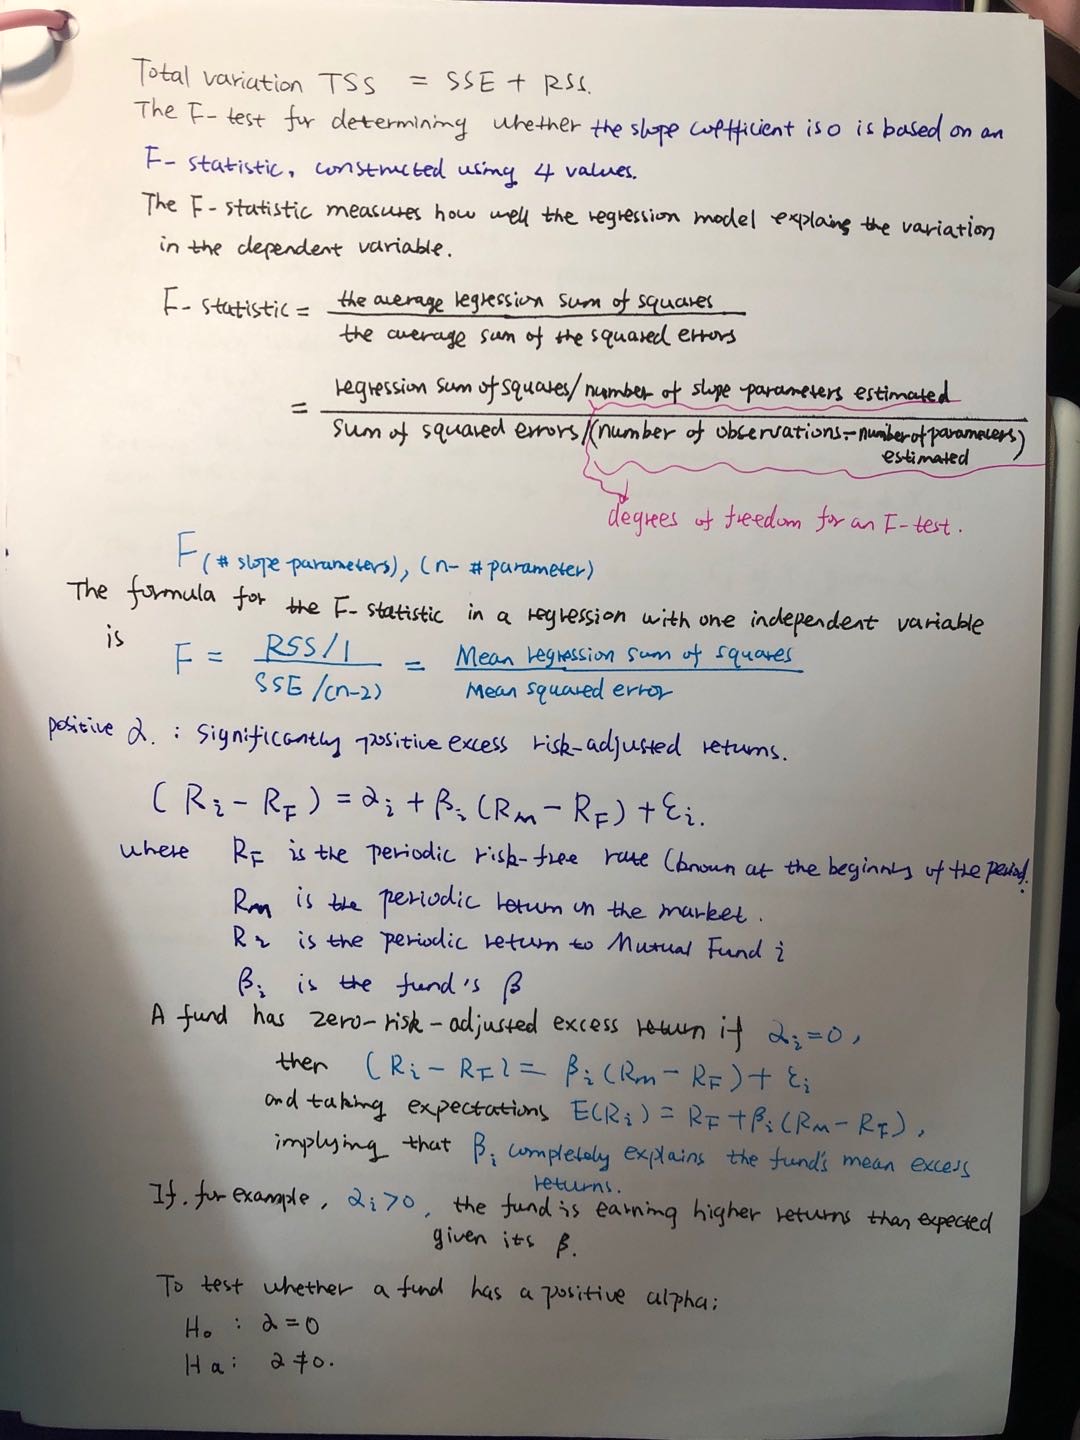 Total variation TSS = SSE + RSS.
The F-test for determining whether the slope coefficient is 0 is based on an
F-statistic, constructed using 4 values.
The F-statistic measures how well the regression model explains the variation
in the dependent variable.
F-statistic = the average regression sum of squares / the average sum of the squared errors
= regression sum of squares/number of slope parameters estimated
sum of squared errors/(number of observations - number of parameters estimated)
degrees of freedom for an F-test.
F(# slope parameters), (n- #parameter)
The formula for the F-statistic in a regression with one independent variable
is
F = RSS/1 / SSE/(n-2) = Mean regression sum of squares / Mean squared error
positive α. : significantly positive excess risk-adjusted returns.
(Ri - RF) = αi + βi (Rm - RF) + εi.
where RF is the periodic risk-free rate (known at the beginning of the period.
Rm is the periodic return on the market.
Ri is the periodic return to Mutual Fund i
βi is the fund's β
A fund has zero-risk-adjusted excess return if αi=0,
then (Ri - RF) = βi (Rm - RF) + εi
and taking expectations E(Ri) = RF + βi (Rm - RF),
implying that βi completely explains the fund's mean excess
returns.
If, for example, αi>0, the fund is earning higher returns than expected
given its β.
To test whether a fund has a positive alpha:
H0 : α = 0
Ha : α ≠ 0.